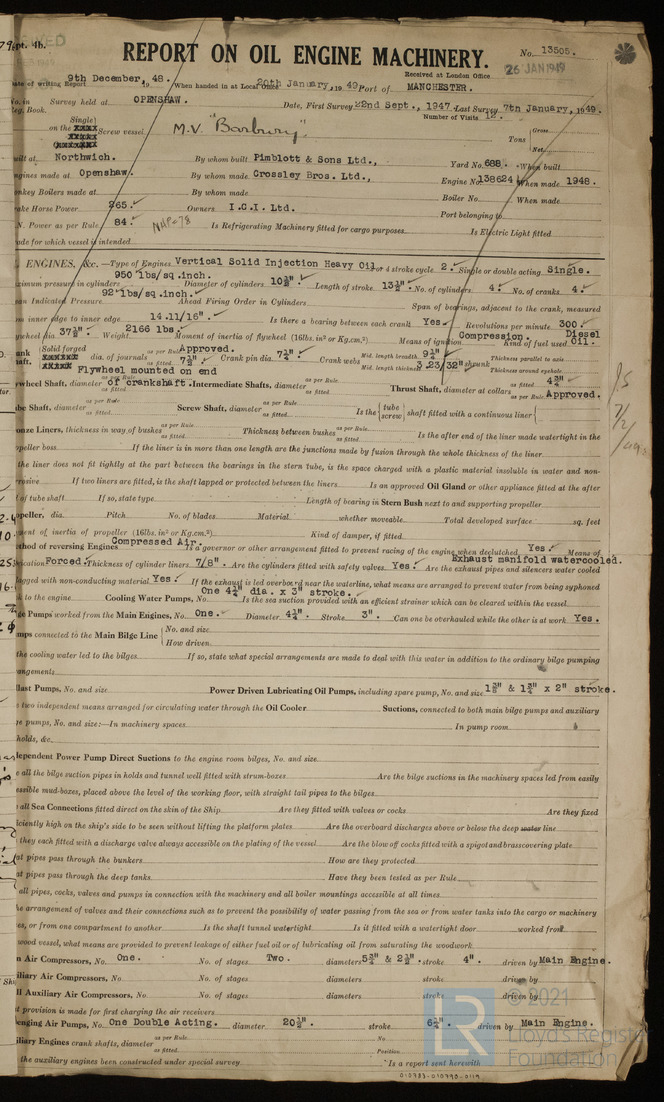 pt. 4b.
REPORT ON OIL ENGINE MACHINERY.
No. 13505.
Received at London Office
26 JAN 1949
of writing Report 9th December, 19 48. When handed in at Local Office 20th January, 19 49 Port of MANCHESTER.
No. in Survey held at OPENSHAW. Date, First Survey 22nd Sept., 1947. Last Survey 7th January, 1949.
Reg. Book. Number of Visits 12.
Single
on the Screw vessel M.V. "Barbury" Tons Gross
Net
built at Northwich. By whom built Pimblott & Sons Ltd., Yard No. 688. When built
Engines made at Openshaw. By whom made Crossley Bros. Ltd., Engine No. 138624 When made 1948.
Donkey Boilers made at By whom made Boiler No. When made
Brake Horse Power 265. Owners I.C.I. Ltd. Port belonging to
N. Power as per Rule 84. NHP=78 Is Refrigerating Machinery fitted for cargo purposes Is Electric Light fitted
Trade for which vessel is intended
ENGINES, &c.—Type of Engines Vertical Solid Injection Heavy Oil 2 or 4 stroke cycle 2. Single or double acting Single.
Maximum pressure in cylinders 950 lbs/sq.inch. Diameter of cylinders 10½". Length of stroke 13½". No. of cylinders 4. No. of cranks 4.
Mean Indicated Pressure 92 lbs/sq.inch. Ahead Firing Order in Cylinders Span of bearings, adjacent to the crank, measured
from inner edge to inner edge 14.11/16". Is there a bearing between each crank Yes. Revolutions per minute 300.
Flywheel dia. 37½". Weight 2166 lbs. Moment of inertia of flywheel (16lbs. in² or Kg.cm.²) Means of ignition Compression. Kind of fuel used Diesel Oil.
Crank Shaft, Solid forged dia. of journals as per Rule Approved. as fitted 7½". Crank pin dia. 7¼". Crank webs Mid. length breadth 9¼" Mid. length thickness 3.23/32" shrunk Thickness parallel to axis Thickness around eyehole
Flywheel Shaft, diameter Flywheel mounted on end of crankshaft. as per Rule as fitted Intermediate Shafts, diameter as per Rule as fitted Thrust Shaft, diameter at collars as fitted 4¾" as per Rule Approved.
Tube Shaft, diameter as per Rule as fitted Screw Shaft, diameter as per Rule as fitted Is the { tube screw } shaft fitted with a continuous liner
Bronze Liners, thickness in way of bushes as per Rule as fitted Thickness between bushes as per Rule as fitted Is the after end of the liner made watertight in the
propeller boss If the liner is in more than one length are the junctions made by fusion through the whole thickness of the liner
If the liner does not fit tightly at the part between the bearings in the stern tube, is the space charged with a plastic material insoluble in water and non-
corrosive If two liners are fitted, is the shaft lapped or protected between the liners Is an approved Oil Gland or other appliance fitted at the after
end of tube shaft If so, state type Length of bearing in Stern Bush next to and supporting propeller
Propeller, dia. Pitch No. of blades Material whether moveable Total developed surface sq. feet
Moment of inertia of propeller (16lbs. in² or Kg.cm.²) Kind of damper, if fitted
Method of reversing Engines Compressed Air. Is a governor or other arrangement fitted to prevent racing of the engine when declutched Yes. Means of
lubrication Forced. Thickness of cylinder liners 7/8". Are the cylinders fitted with safety valves Yes. Are the exhaust pipes and silencers water cooled Exhaust manifold watercooled.
or lagged with non-conducting material Yes. If the exhaust is led overboard near the waterline, what means are arranged to prevent water from being syphoned
back to the engine Cooling Water Pumps, No. One 4¾" dia. x 3" stroke. Is the sea suction provided with an efficient strainer which can be cleared within the vessel
Bilge Pumps worked from the Main Engines, No. One. Diameter 4¼". Stroke 3". Can one be overhauled while the other is at work Yes.
Pumps connected to the Main Bilge Line { No. and size
How driven
Is the cooling water led to the bilges If so, state what special arrangements are made to deal with this water in addition to the ordinary bilge pumping
arrangements
Ballast Pumps, No. and size Power Driven Lubricating Oil Pumps, including spare pump, No. and size 1⅜" & 1¾" x 2" stroke.
Are two independent means arranged for circulating water through the Oil Cooler Suctions, connected to both main bilge pumps and auxiliary
bilge pumps, No. and size:—In machinery spaces In pump room
In holds, &c.
Independent Power Pump Direct Suctions to the engine room bilges, No. and size
Are all the bilge suction pipes in holds and tunnel well fitted with strum-boxes Are the bilge suctions in the machinery spaces led from easily
accessible mud-boxes, placed above the level of the working floor, with straight tail pipes to the bilges
Are all Sea Connections fitted direct on the skin of the Ship Are they fitted with valves or cocks Are they fixed
sufficiently high on the ship's side to be seen without lifting the platform plates Are the overboard discharges above or below the deep water line
Are they each fitted with a discharge valve always accessible on the plating of the vessel Are the blow off cocks fitted with a spigot and brass covering plate
What pipes pass through the bunkers How are they protected
What pipes pass through the deep tanks Have they been tested as per Rule
Are all pipes, cocks, valves and pumps in connection with the machinery and all boiler mountings accessible at all times
Is the arrangement of valves and their connections such as to prevent the possibility of water passing from the sea or from water tanks into the cargo or machinery
spaces, or from one compartment to another Is the shaft tunnel watertight Is it fitted with a watertight door worked from
If a wood vessel, what means are provided to prevent leakage of either fuel oil or of lubricating oil from saturating the woodwork
Main Air Compressors, No. One. No. of stages Two. diameters 5¾" & 2½". stroke 4". driven by Main Engine.
Auxiliary Air Compressors, No. No. of stages diameters stroke driven by
Small Auxiliary Air Compressors, No. No. of stages diameters stroke driven by
What provision is made for first charging the air receivers
Scavenging Air Pumps, No. One Double Acting. diameter 20½". stroke 6¼". driven by Main Engine.
Auxiliary Engines crank shafts, diameter as per Rule as fitted No Position
Have the auxiliary engines been constructed under special survey Is a report sent herewith
© 2021
Lloyd's Register
Foundation
010783-010793-0119